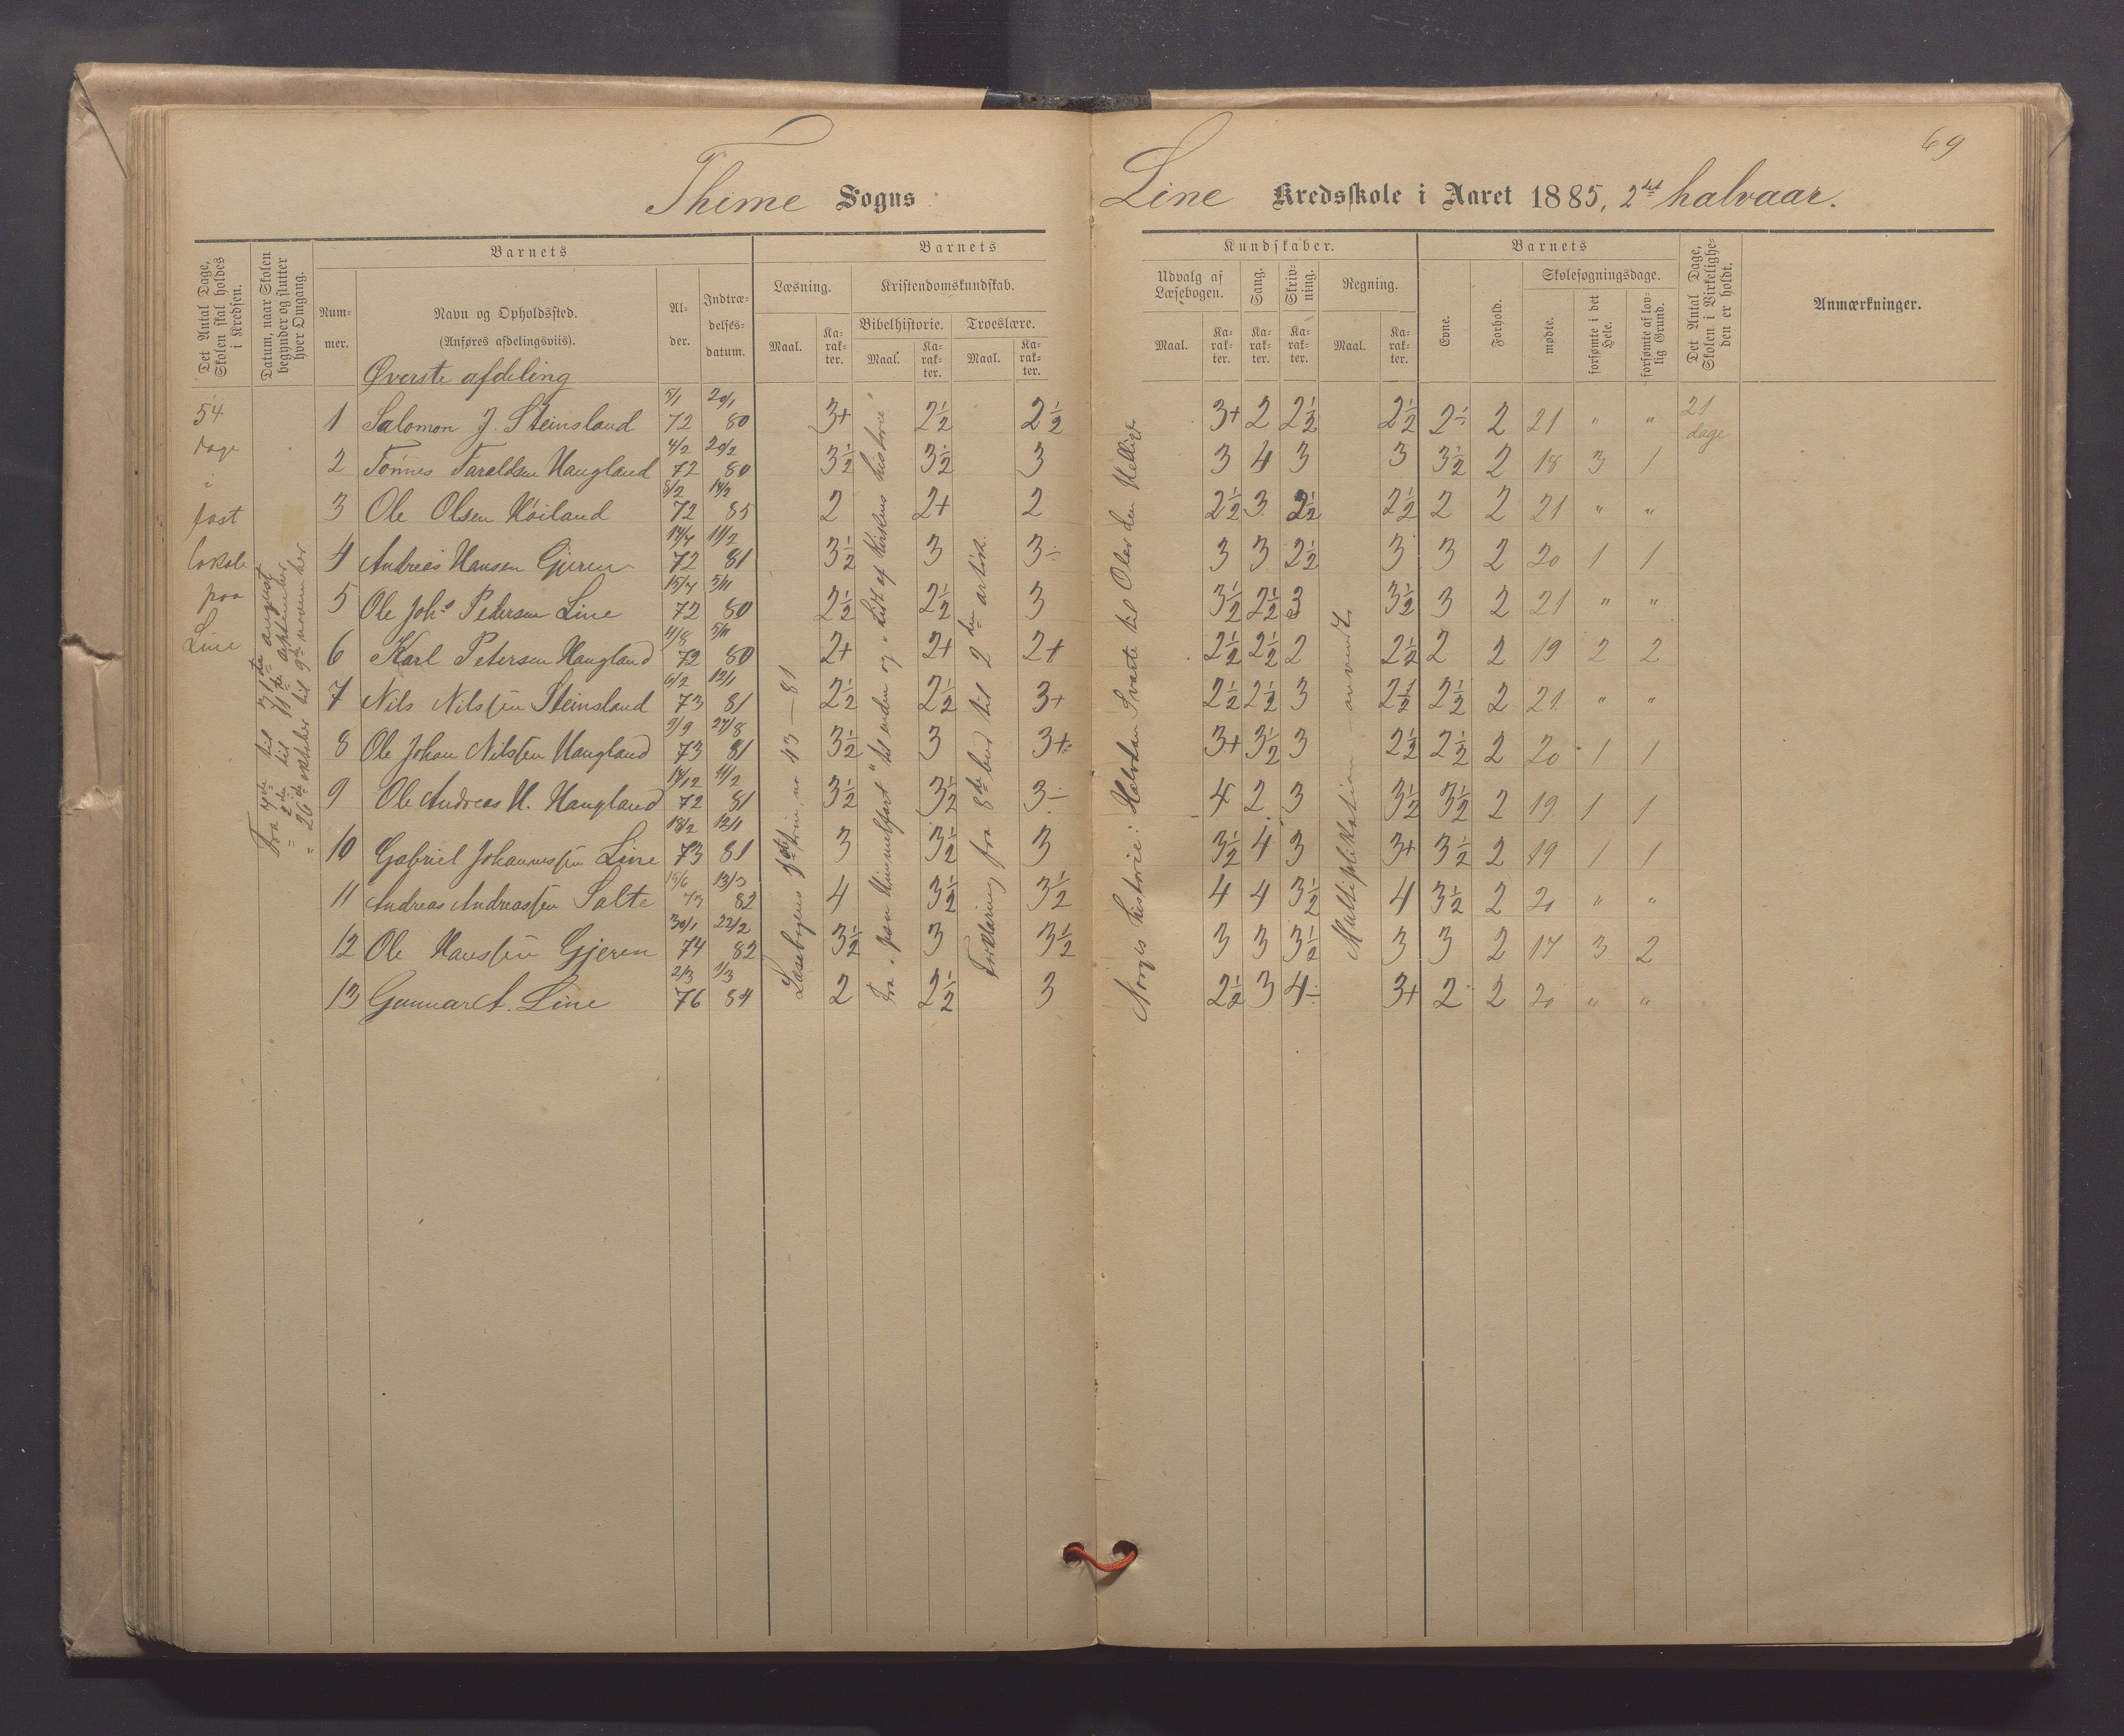 69
Thime Sogns
Line Kredsskole i Aaret 1885, 2det halvaar.
Det Antal Dage, Skolen skal holdes i Kredsen.
Datum, naar Skolen begynder og slutter hver Omgang.
Barnets
Nummer.
Navn og Opholdssted.
(Anføres afdelingsviis).
Alder.
Indtrædelsesdatum.
Barnets
Læsning.
Kristendomskundskab.
Bibelhistorie.
Troeslære.
Maal. Karakter. Maal. Karakter. Maal. Karakter.
Kundskaber.
Udvalg af Læsebogen.
Sang.
Skrivning.
Regning.
Maal. Karakter. Karakter. Karakter. Maal. Karakter.
Barnets
Evne.
Forhold.
Skolesøgningsdage.
mødte.
forsømte i det Hele.
forsømte af lovlig Grund.
Det Antal Dage, Skolen i Virkeligheden er holdt.
Anmærkninger.
Øverste afdeling
54 dage i fast lokale paa Line
21 dage
1 Salomon J. Steinsland 5/1 72 20/1 80 3+ 2½ 2½ 3+ 2 2½ 2½ 2÷ 2 21 " "
2 Tønnes Taraldsen Haugland 4/2 72 20/2 80 3½ 3½ 3 3 4 3 3 3½ 2 18 3 1
3 Ole Olsen Høiland 8/2 72 14/2 85 2 2+ 2 2½ 3 2½ 2½ 2 2 21 " "
4 Andreas Hansen Gjeren 14/4 72 11/2 81 3½ 3 3÷ 3 3 2½ 3 3 2 20 1 1
5 Ole Johs Pedersen Line 15/4 72 5/11 80 2½ 2½ 3 3½ 2½ 3 3½ 3 2 21 " "
6 Karl Petersen Haugland 4/8 72 5/11 80 2+ 2+ 2+ 2½ 2½ 2 2½ 2 2 19 2 2
7 Nils Nilssen Steinsland 6/2 73 12/1 81 2½ 2½ 3+ 2½ 2½ 3 2½ 2½ 2 21 " "
8 Ole Johan Nilssen Haugland 9/9 73 27/8 81 3½ 3 3+ 3+ 3½ 3 2½ 2½ 2 20 1 1
9 Ole Andreas H. Haugland 14/12 72 11/2 81 3½ 3½ 3÷ 4 2 3 3½ 3½ 2 19 1 1
10 Gabriel Johannessen Line 18/2 73 12/1 81 3 3½ 3 3½ 4 3 3+ 3½ 2 19 1 1
11 Andreas Andreassen Salte 15/6 73 13/3 82 4 3½ 3½ 4 4 3½ 4 3½ 2 20 " "
12 Ole Hanssen Gjeren 30/1 74 22/2 82 3½ 3 3½ 3 3 3½ 3 3 2 17 3 2
13 Gunnar A. Line 2/3 76 1/3 84 2 2½ 3 2½ 3 4÷ 3+ 2 2 20 " "
til 31te august
= 2den til 11te september
= 26de oktober til 9de november
Læsebogens no 43 — 81
Fra "Jesu Himmelfart" til enden og "Lidt af Kirkens historie"
Forklaring fra 8de bud til 2den artikk.
Norges historie: Halvdan Svarte til Olav den Hellige
Multiplikation anvendt